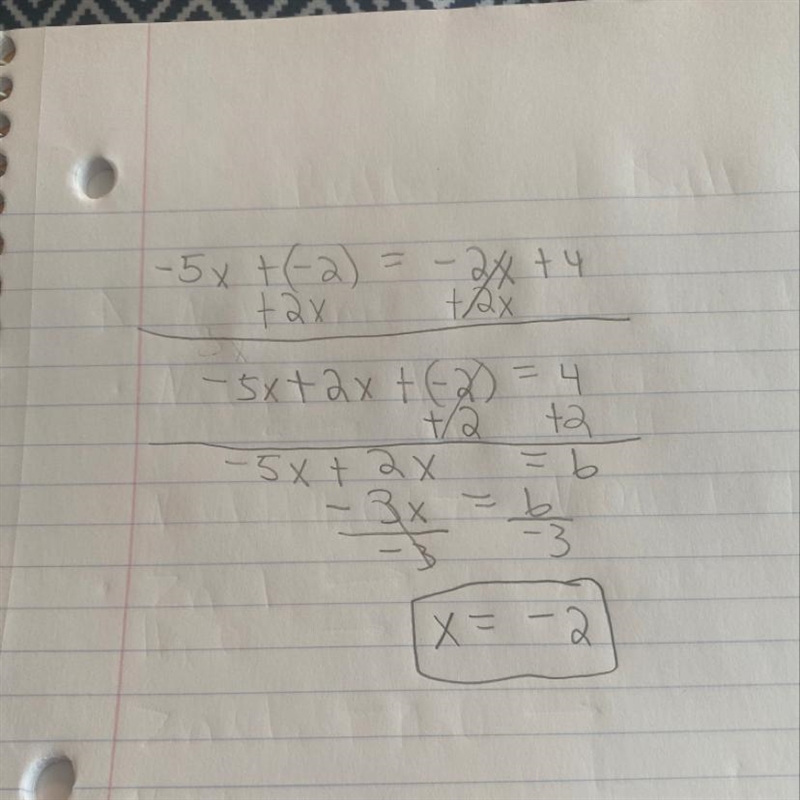 -5x + (-2) = -2x + 4
+2x +2x
-5x + 2x + (-2) = 4
+2 +2
-5x + 2x = 6
-3x = 6
-3 -3
x = -2